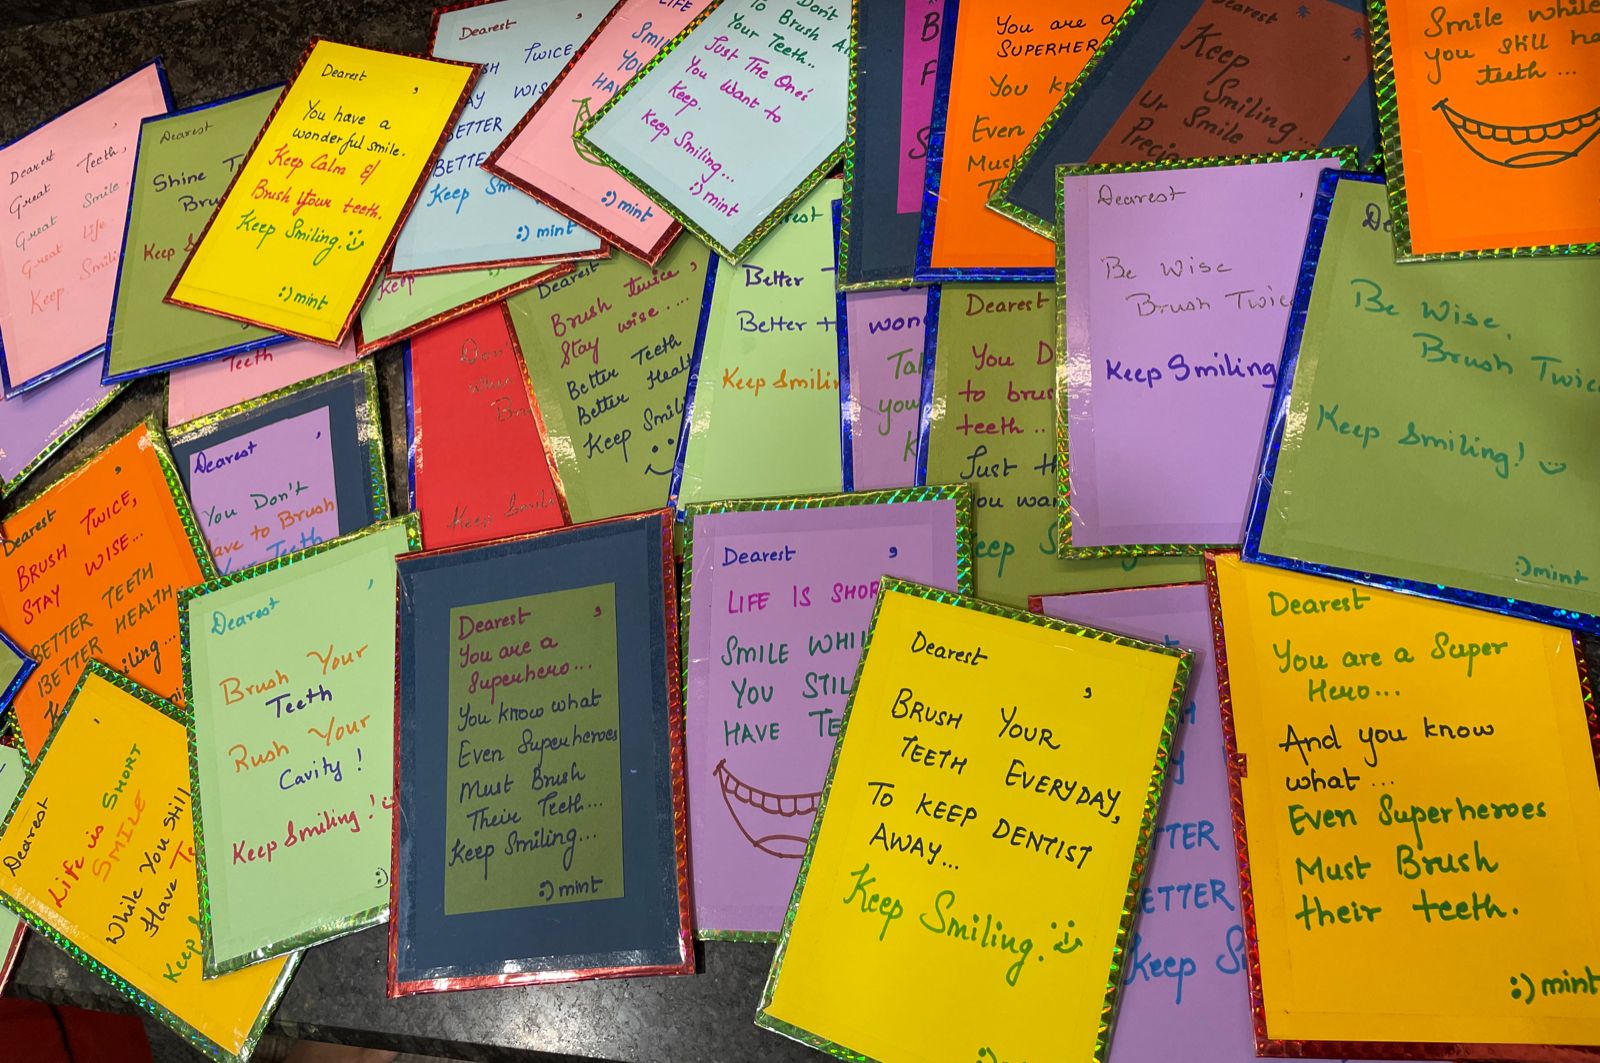 Dearest
Great Teeth,
Great Smile,
Great Life
Keep Smili
Dearest
Shine T
Bru
Keep S
Dearest ,
You have a
wonderful smile.
Keep Calm &
Brush your teeth.
Keep Smiling!
:) mint
Dearest ,
SH TWICE,
AY WIS
BETTER
BETTE
Keep Sm
:) mint
LIFE
SMIL
YOU
HAV
:) mint
Don't
To Brush Al
Your Teeth..
Just The One's
You Want to
Keep.
Keep Smiling...
:) mint
B
F
S
You are a
SUPERHER
You kn
Even
Must
T
Dearest
Keep
Smiling...
Ur Smile
Precio
Smile while
you still ha
teeth ...
Teeth
Dearest ,
You Don't
ave to Brush
Teeth
Keep
Don'
Whe
Br
Keep Smili
Dearest ,
Brush twice
Stay wise....
Better Teeth
Better Healt
Keep Smil
est
Better
Better +
Keep Smilin
won
Tal
you
K
Dearest
You D
to brus
teeth ..
Just th
you wan
eep S
Dearest ,
Be Wise
Brush Twic
Keep Smiling
De
Be Wise,
Brush Twice
Keep Smiling!
:) mint
Dearest ,
BRUSH TWICE,
STAY WISE...
BETTER TEETH
BETTER HEALTH
iling...
Dearest ,
Life is SHORT
SMILE
While You Still
Have Te
Keep
Dearest ,
Brush Your
Teeth
Rush Your
Cavity !
Keep Smiling !
:)
Dearest ,
You are a
Superhero...
You know what
Even Superheroes
Must Brush
Their Teeth...
Keep Smiling...
:) mint
Dearest ,
LIFE IS SHOR
SMILE WHIL
YOU STIL
HAVE TE
Dearest ,
BRUSH YOUR
TEETH EVERYDAY,
TO KEEP DENTIST
AWAY...
Keep Smiling!
:) m
H
Y
TTER
ETTER
Keep Si
Dearest
You are a Super
Hero...
And you know
what ...
Even Superheroes
Must Brush
their teeth.
:) mint